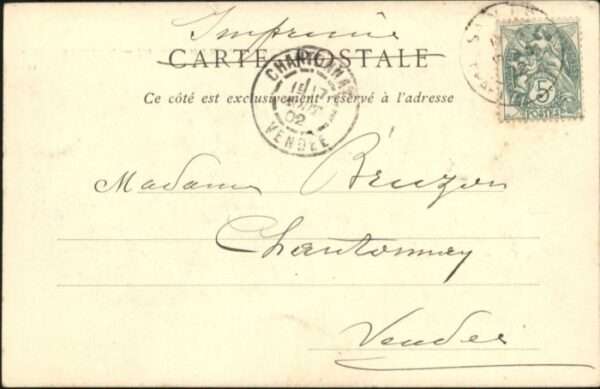 Imprimé
CARTE POSTALE
Ce côté est exclusivement réservé à l'adresse
5
POSTES
02
VENDEE
Madame Bruzon
Chantonnay
Vendée